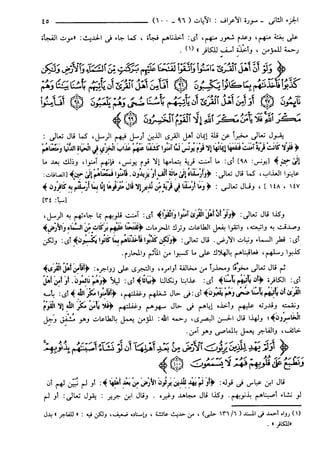 الجزء الثاني - سورة الأعراف: الآيات ( ٩٦ - ١٠٠ )
٤٥
على بغتة منهم، وعدم شعور منهم، أي: أخذناهم فجأة، كما جاء في الحديث: «موت الفجأة
رحمة للمؤمن، وأخذة أسف للكافر» (١) .
﴿وَلَوْ أَنَّ أَهْلَ الْقُرَىٰ ءَامَنُوا وَاتَّقَوْا لَفَتَحْنَا عَلَيْهِم بَرَكَٰتٍ مِّنَ السَّمَاءِ وَالْأَرْضِ وَلَٰكِن
كَذَّبُوا فَأَخَذْنَٰهُم بِمَا كَانُوا يَكْسِبُونَ ﴿٩٦﴾ أَفَأَمِنَ أَهْلُ الْقُرَىٰ أَن يَأْتِيَهُم بَأْسُنَا بَيَٰتًا وَهُمْ
نَائِمُونَ ﴿٩٧﴾ أَوَأَمِنَ أَهْلُ الْقُرَىٰ أَن يَأْتِيَهُم بَأْسُنَا ضُحًى وَهُمْ يَلْعَبُونَ ﴿٩٨﴾ أَفَأَمِنُوا
مَكْرَ اللَّهِ فَلَا يَأْمَنُ مَكْرَ اللَّهِ إِلَّا الْقَوْمُ الْخَٰسِرُونَ ﴿٩٩﴾
يقول تعالى مخبراً عن قلة إيمان أهل القرى الذين أرسل فيهم الرسل، كما قال تعالى :
﴿فَلَوْلَا كَانَتْ قَرْيَةٌ ءَامَنَتْ فَنَفَعَهَا إِيمَٰنُهَا إِلَّا قَوْمَ يُونُسَ لَمَّا ءَامَنُوا كَشَفْنَا عَنْهُمْ عَذَابَ الْخِزْيِ فِي الْحَيَوٰةِ الدُّنْيَا وَمَتَّعْنَٰهُمْ
إِلَىٰ حِينٍ﴾ [يونس: ٩٨] أي: ما آمنت قرية بتمامها إلا قوم يونس، فإنهم آمنوا، وذلك بعد ما
عاينوا العذاب، كما قال تعالى: ﴿وَأَرْسَلْنَٰهُ إِلَىٰ مِائَةِ أَلْفٍ أَوْ يَزِيدُونَ. فَـَٔامَنُوا فَمَتَّعْنَٰهُمْ إِلَىٰ حِينٍ﴾ [الصافات:
١٤٧ ، ١٤٨ ] ، وقال تعالى : ﴿ وَمَا أَرْسَلْنَا فِي قَرْيَةٍ مِّن نَّذِيرٍ إِلَّا قَالَ مُتْرَفُوهَا إِنَّا بِمَا أُرْسِلْتُم بِهِ كَٰفِرُونَ ﴾
[سبأ: ٣٤]
وكذا قال تعالى: ﴿وَلَوْ أَنَّ أَهْلَ الْقُرَىٰ ءَامَنُوا وَاتَّقَوْا﴾ أي: آمنت قلوبهم بما جاءتهم به الرسل،
وصدقت به واتبعته، واتقوا بفعل الطاعات وترك المحرمات ﴿لَفَتَحْنَا عَلَيْهِم بَرَكَٰتٍ مِّنَ السَّمَاءِ وَالْأَرْضِ﴾
أي: قطر السماء ونبات الأرض. قال تعالى: ﴿وَلَٰكِن كَذَّبُوا فَأَخَذْنَٰهُم بِمَا كَانُوا يَكْسِبُونَ﴾ أي: ولكن
كذبوا رسلهم، فعاقبناهم بالهلاك على ما كسبوا من المآثم والمحارم.
ثم قال تعالى مخوفاً ومحذراً من مخالفة أوامره، والتجرى على زواجره: ﴿أَفَأَمِنَ أَهْلُ الْقُرَىٰ﴾
أي: الكافرة ﴿أَن يَأْتِيَهُم بَأْسُنَا﴾ أي: عذابنا ونكالنا ﴿بَيَٰتًا﴾ أي: ليلاً ﴿وَهُمْ نَائِمُونَ. أَوَأَمِنَ أَهْلُ
الْقُرَىٰ أَن يَأْتِيَهُم بَأْسُنَا ضُحًى وَهُمْ يَلْعَبُونَ﴾ أي: في حال شغلهم وغفلتهم، ﴿أَفَأَمِنُوا مَكْرَ اللَّهِ﴾ أي: بأسه
ونقمته وقدرته عليهم وأخذه إياهم في حال سهوهم وغفلتهم ﴿فَلَا يَأْمَنُ مَكْرَ اللَّهِ إِلَّا الْقَوْمُ
الْخَٰسِرُونَ﴾، ولهذا قال الحسن البصري، رحمه الله: المؤمن يعمل بالطاعات وهو مشفق وجل
خائف، والفاجر يعمل بالمعاصي وهو آمن.
﴿أَوَلَمْ يَهْدِ لِلَّذِينَ يَرِثُونَ الْأَرْضَ مِن بَعْدِ أَهْلِهَا أَن لَّوْ نَشَاءُ أَصَبْنَٰهُم بِذُنُوبِهِمْ
وَنَطْبَعُ عَلَىٰ قُلُوبِهِمْ فَهُمْ لَا يَسْمَعُونَ ﴿١٠٠﴾
قال ابن عباس في قوله: ﴿أَوَلَمْ يَهْدِ لِلَّذِينَ يَرِثُونَ الْأَرْضَ مِن بَعْدِ أَهْلِهَا﴾ : أو لم نبين لهم أن
لو نشاء أصبناهم بذنوبهم. وكذا قال مجاهد وغيره . وقال ابن جرير : يقول تعالى: أو لم
(١) رواه أحمد في المسند (١٣٦/٦ حلبي) ، من حديث عائشة ، وإسناده ضعيف، ولكن فيه : « للفاجر » بدل
«للكافر» .